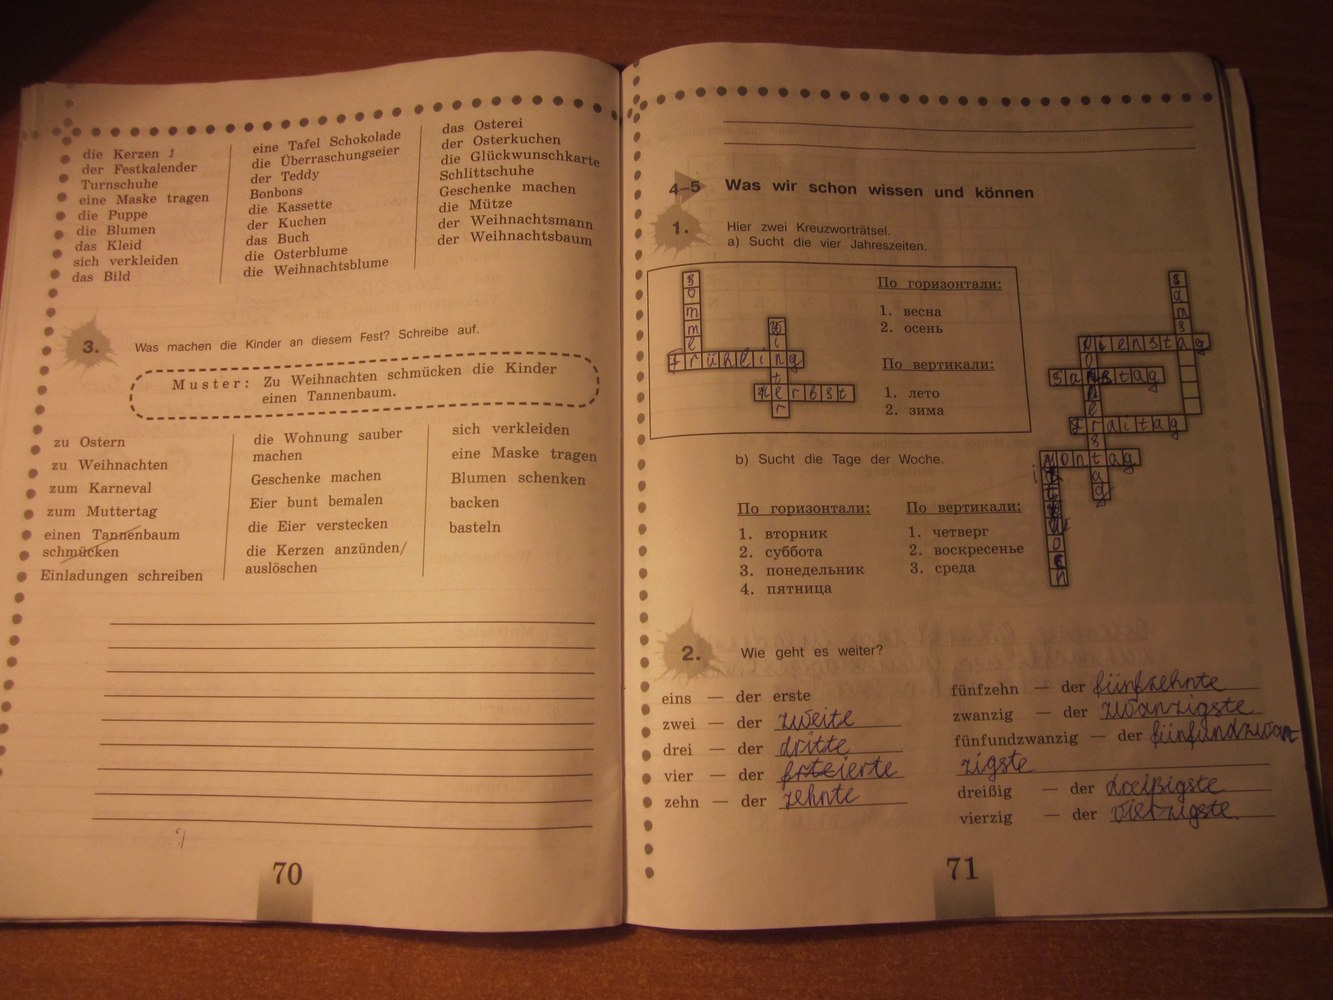 die Kerzen 1
der Festkalender
Turnschuhe
eine Maske tragen
die Puppe
die Blumen
das Kleid
sich verkleiden
das Bild
eine Tafel Schokolade
die Überraschungseier
der Teddy
Bonbons
die Kassette
der Kuchen
das Buch
die Osterblume
die Weihnachtsblume
das Osterei
der Osterkuchen
die Glückwunschkarte
Schlittschuhe
Geschenke machen
die Mütze
der Weihnachtsmann
der Weihnachtsbaum
3. Was machen die Kinder an diesem Fest? Schreibe auf.
Muster: Zu Weihnachten schmücken die Kinder
einen Tannenbaum.
zu Ostern
zu Weihnachten
zum Karneval
zum Muttertag
einen Tannenbaum
schmücken
Einladungen schreiben
die Wohnung sauber
machen
Geschenke machen
Eier bunt bemalen
die Eier verstecken
die Kerzen anzünden/
auslöschen
sich verkleiden
eine Maske tragen
Blumen schenken
backen
basteln
70
4–5 Was wir schon wissen und können
1. Hier zwei Kreuzworträtsel.
a) Sucht die vier Jahreszeiten.
sommer
frühling
winter
herbst
По горизонтали:
1. весна
2. осень
По вертикали:
1. лето
2. зима
dienstag
samstag
fraitag
montag
b) Sucht die Tage der Woche.
По горизонтали:
1. вторник
2. суббота
3. понедельник
4. пятница
По вертикали:
1. четверг
2. воскресенье
3. среда
2. Wie geht es weiter?
eins — der erste
zwei — der zweite
drei — der dritte
vier — der
zehn — der zehnte
fünfzehn — der fünfzehnte
zwanzig — der zwanzigste
fünfundzwanzig — der fünfundzwan
zigste
dreißig — der dreißigste
vierzig — der vierzigste
71